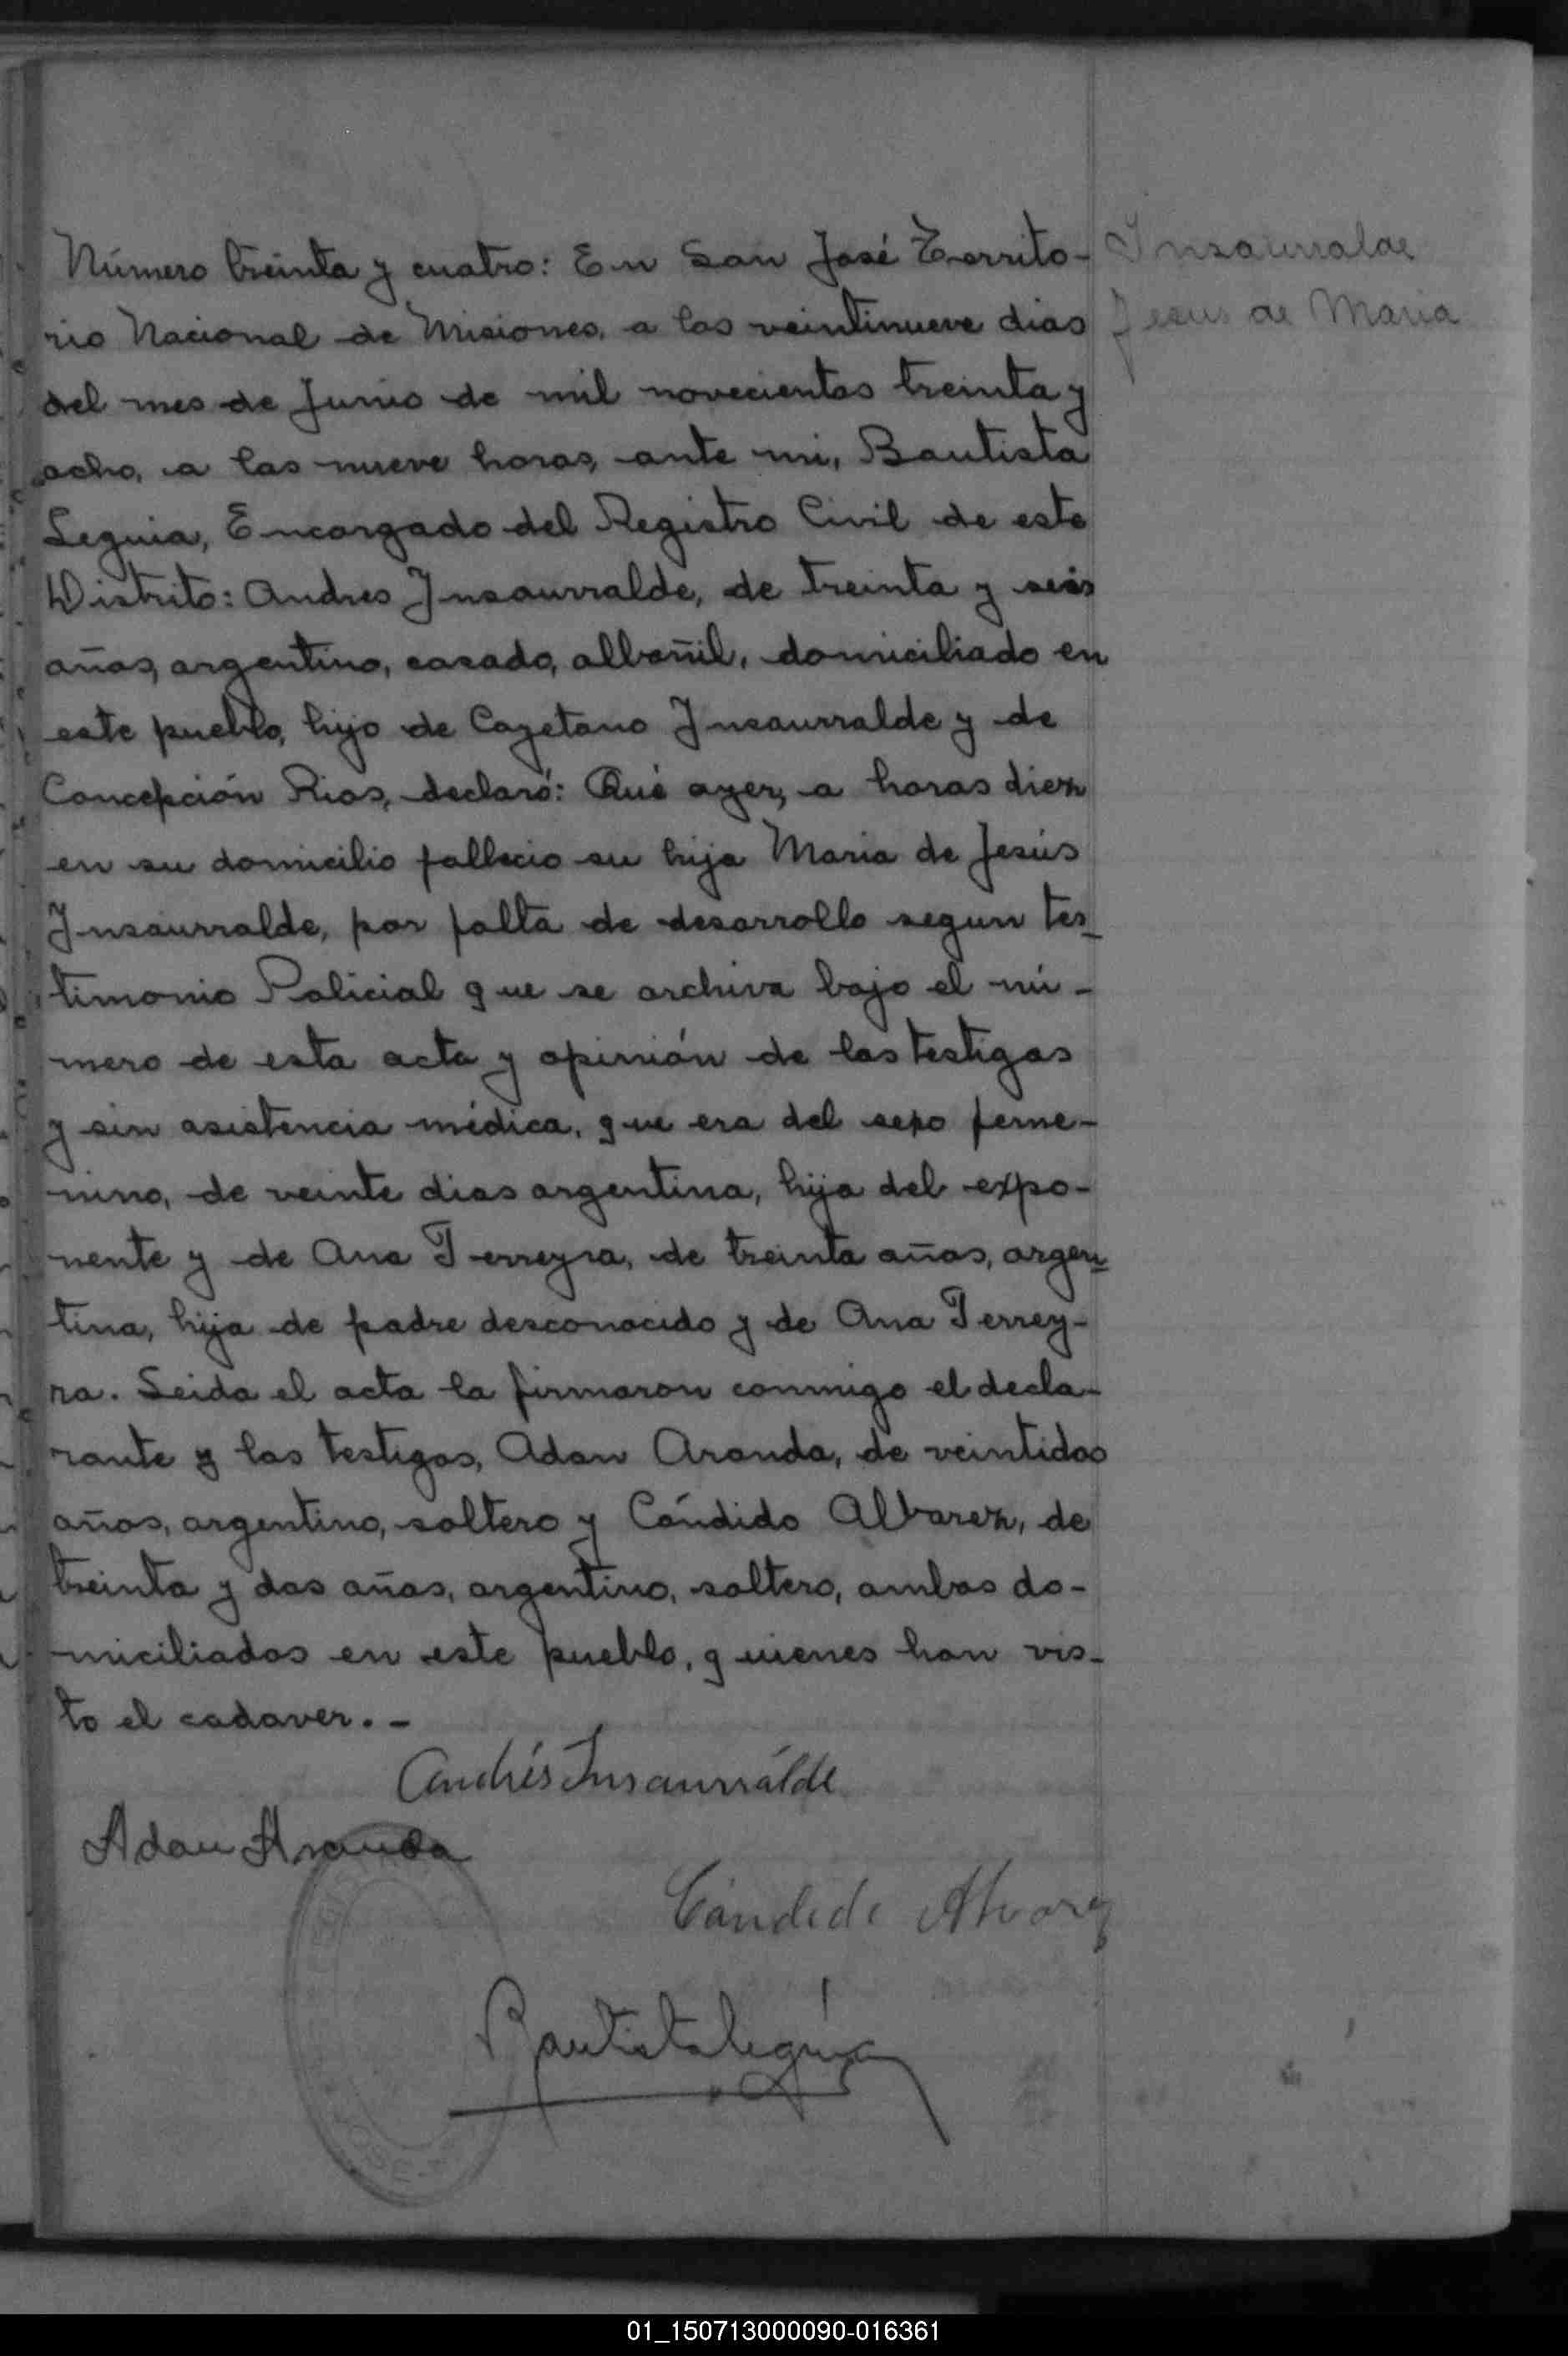 Insaurralde
Jesus de Maria
Número treinta y cuatro: En San José Territo-
rio Nacional de Misiones, a los veintinueve dias
del mes de Junio de mil novecientos treinta y
ocho, a las nueve horas, ante mi, Bautista
Leguia, Encargado del Registro Civil de este
Distrito: Andres Insaurralde, de treinta y seis
años, argentino, casado, albañil, domiciliado en
este pueblo, hijo de Cayetano Insaurralde y de
Concepción Rios, declaró: Qué ayer, a horas diez
en su domicilio fallecio su hija Maria de Jesús
Insaurralde, por falta de desarrollo segun tes_
timonio Policial que se archiva bajo el nú-
mero de esta acta y opinión de los testigos
y sin asistencia médica, que era del sexo feme-
nino, de veinte dias argentina, hija del expo-
nente y de Ana Ferreyra, de treinta años, argen_
tina, hija de padre desconocido y de Ana Ferrey-
ra. Leida el acta la firmaron conmigo el decla-
rante y los testigos, Adan Aranda, de veintidos
años, argentino, soltero y Cándido Albarez, de
treinta y dos años, argentino, soltero, ambos do-
miciliados en este pueblo, quienes han vis-
to el cadaver. -
Andrés Insaurrálde
Adan Aranda
Cándido Alvarez
Bautista Leguía
01_150713000090-016361